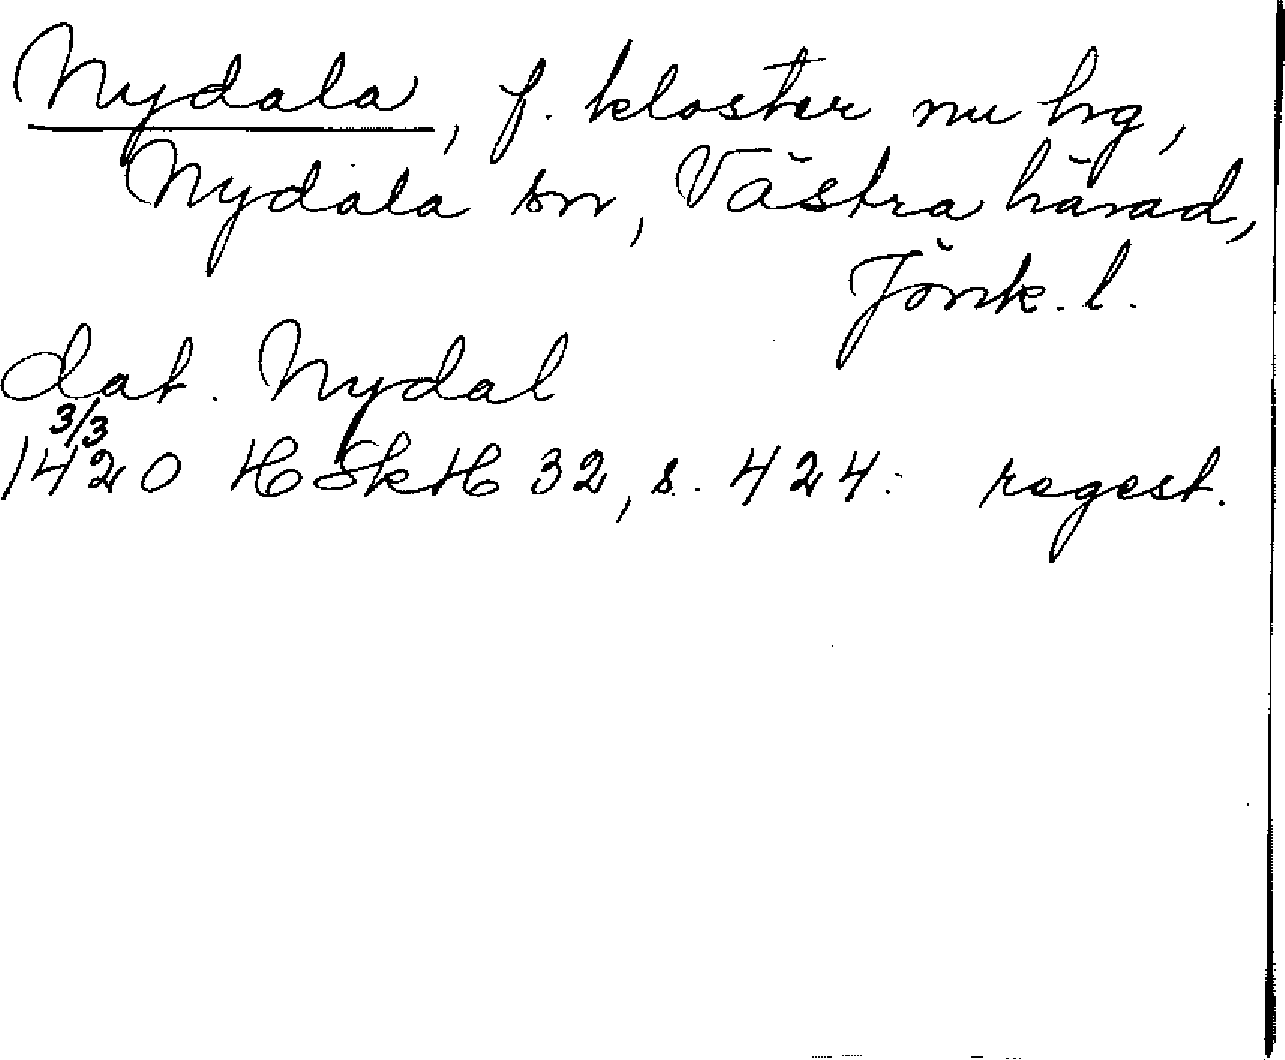 Nydala, f. kloster nu hg,
Nydala sn, Västra härad,
Jönk. l.
dat. Nydal
3/3
1420 HSkH 32, s. 424. regest.